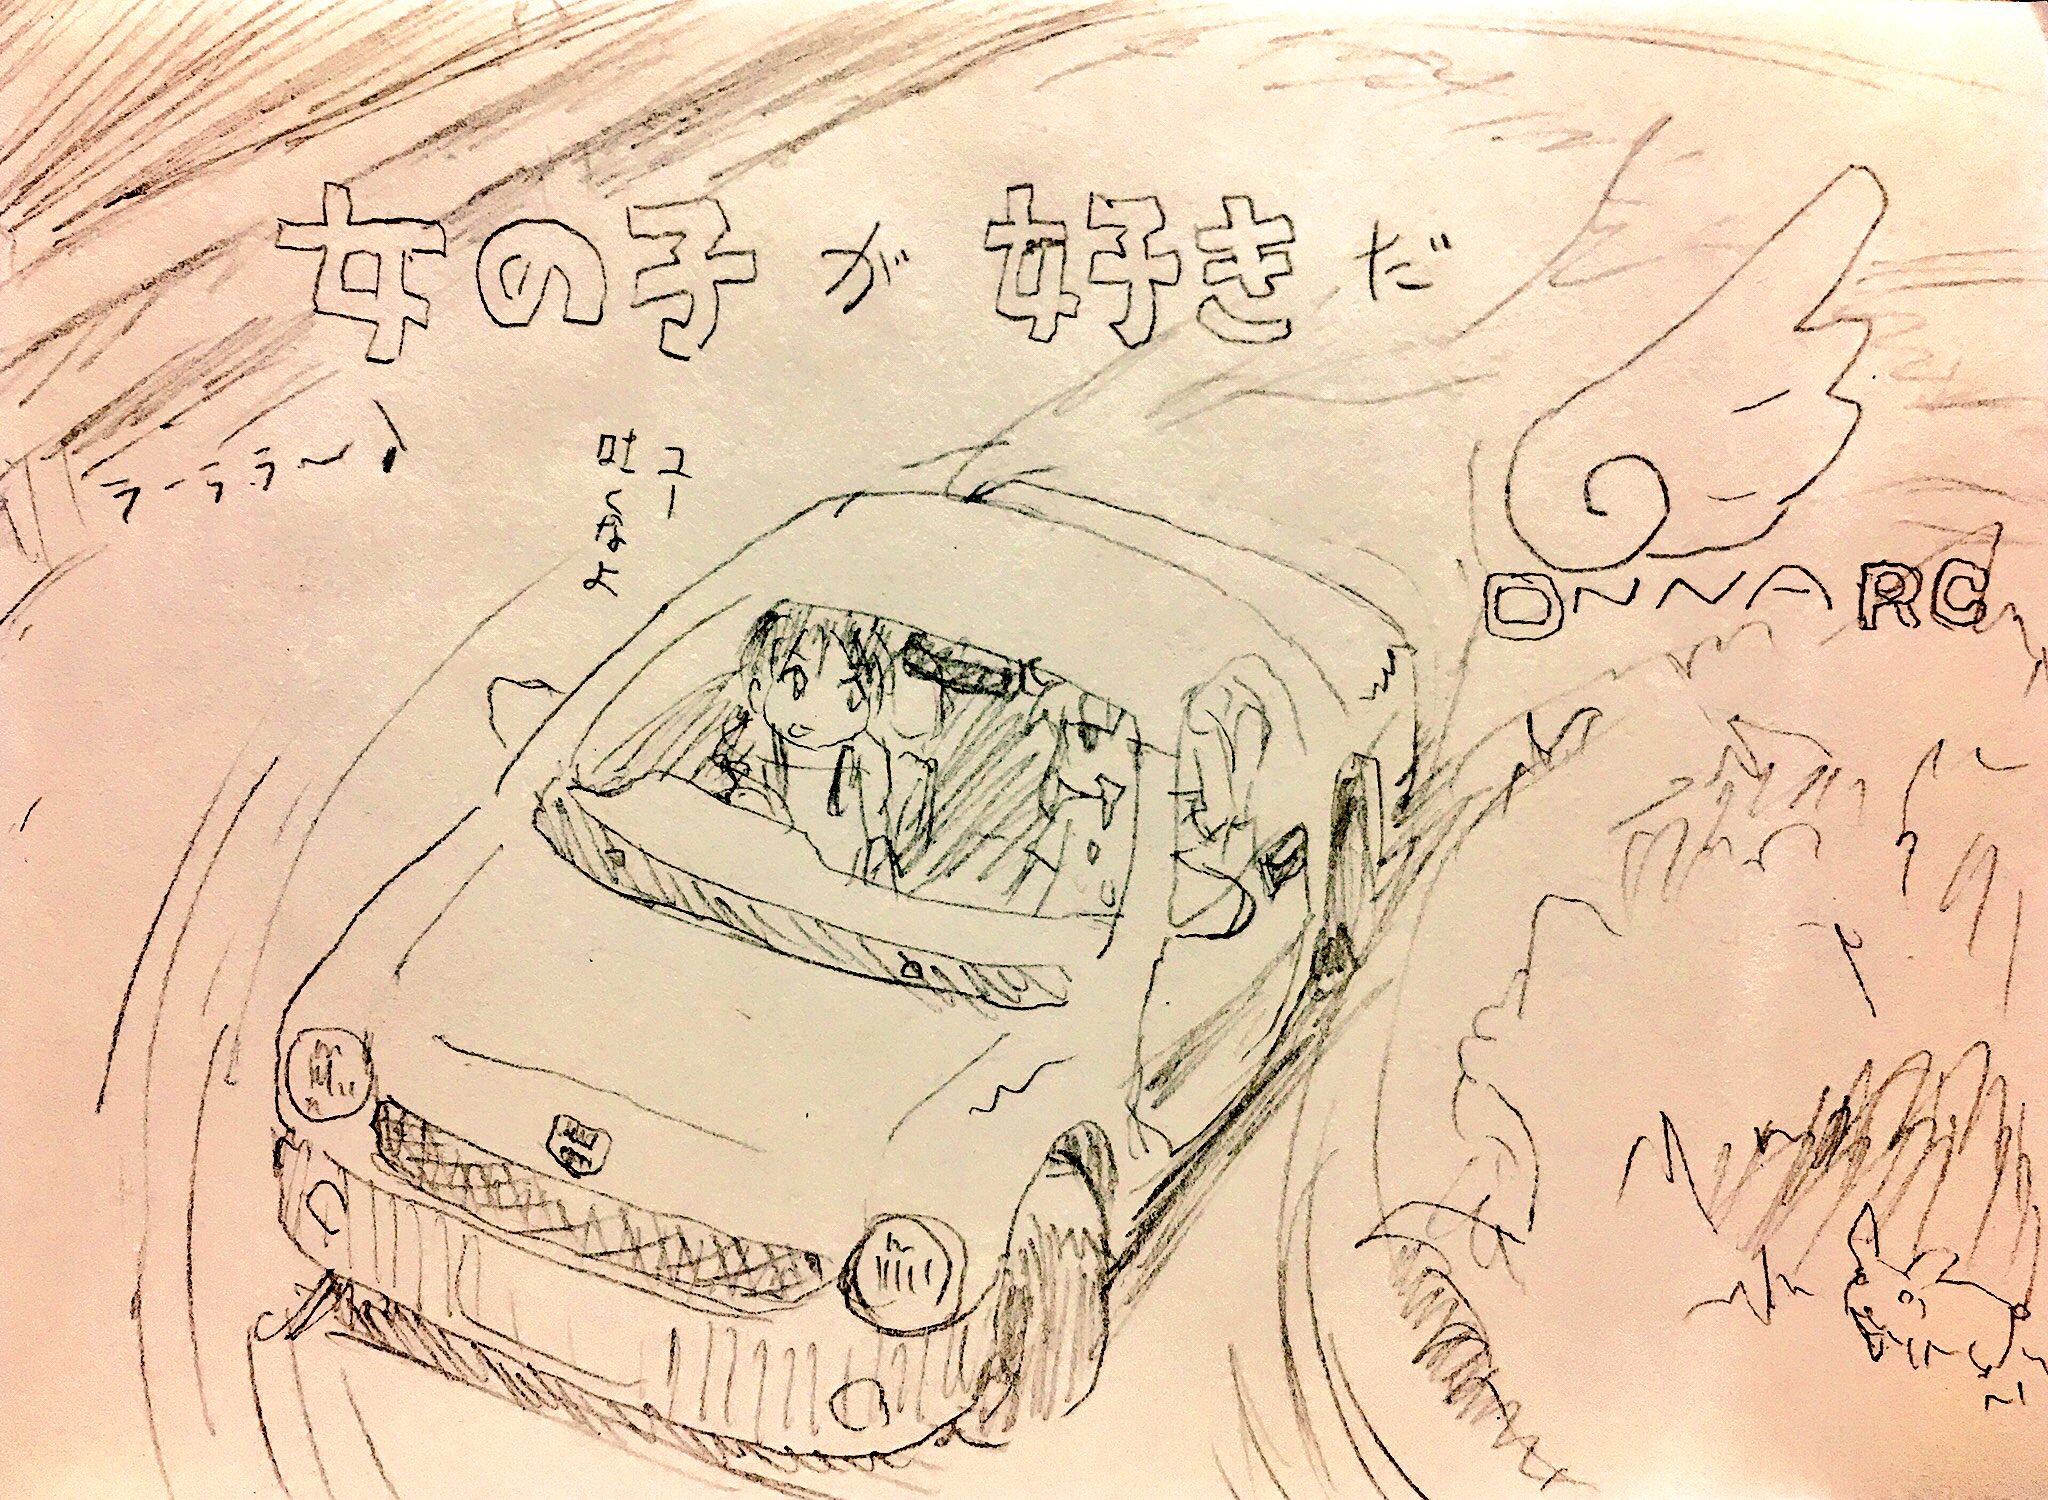 女の子が好きだ
ラーララ〜♪
ユー
吐くなよ
ONNARC